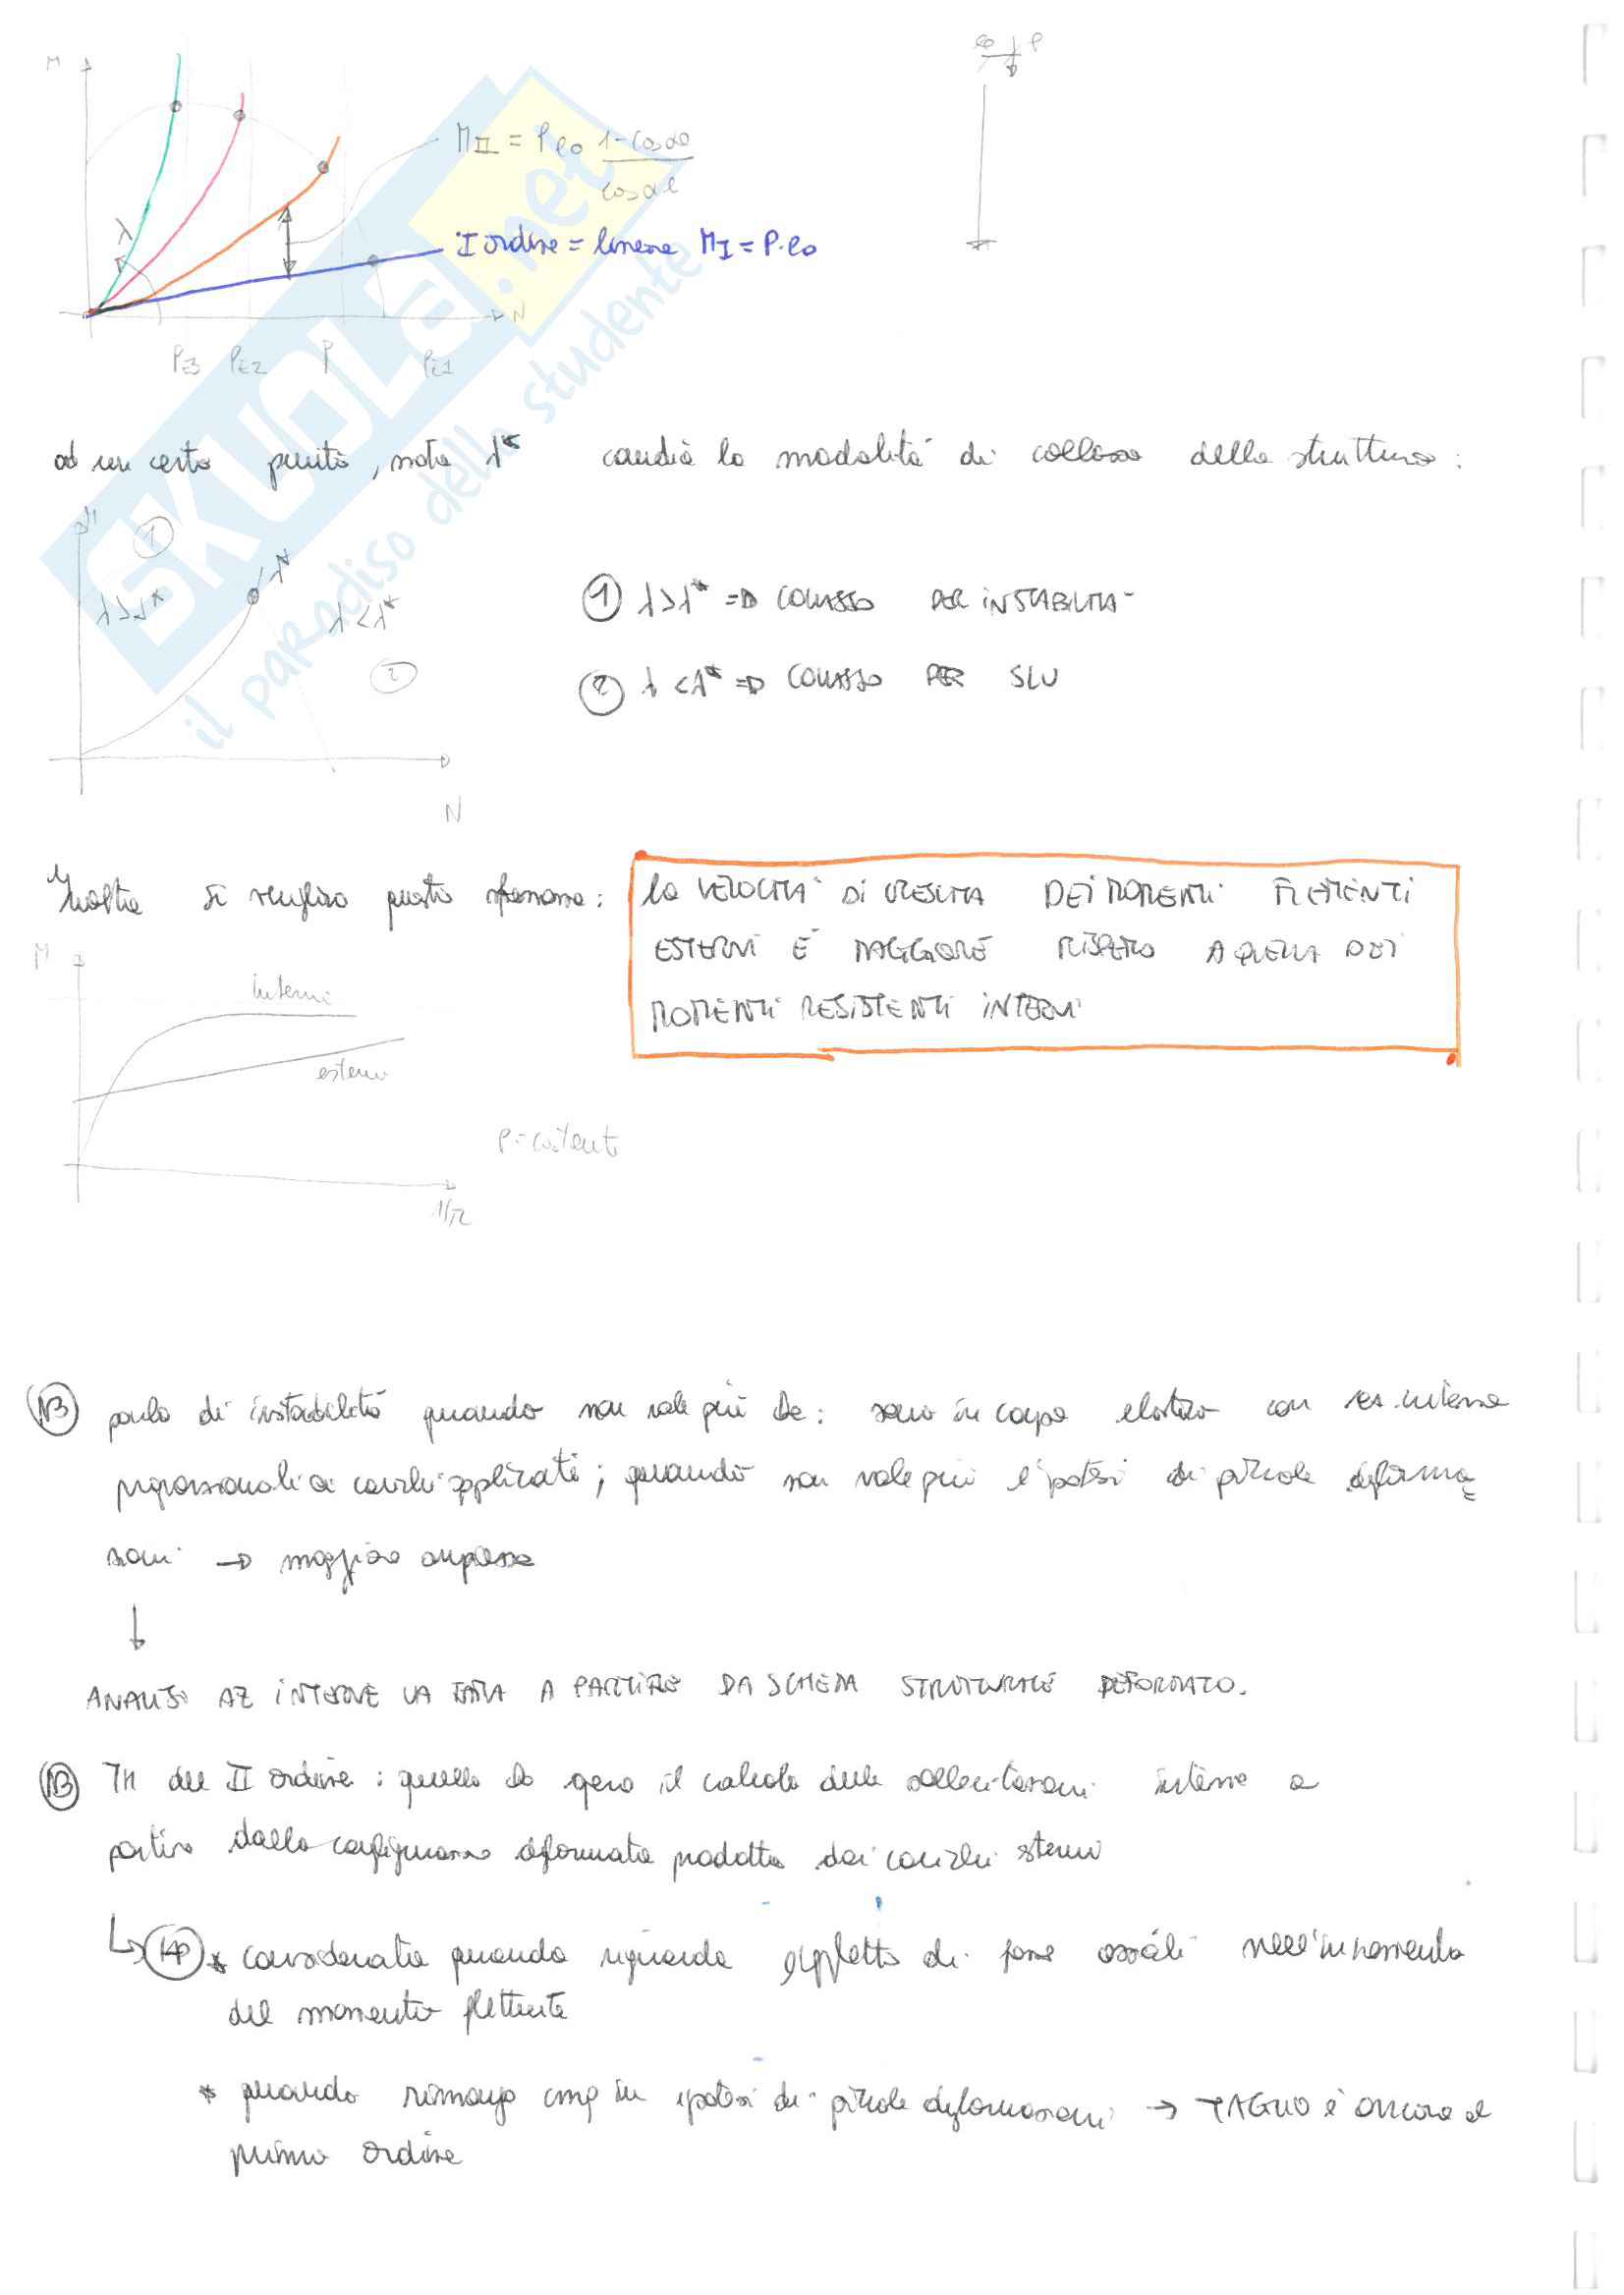 M
e0 P
M_II = P e0 (1 - cos αl) / cos αl
λ
I ordine = lineare M_I = P·e0
N
P_E3 P_E2 P P_E1
SKUOLA.net
il paradiso dello studente
ad un certo punto, nota λ* cambia la modalità di collasso della struttura:
1
λ*
λ>λ*
λ<λ*
2
① λ>λ* => COLLASSO PER INSTABILITA'
② λ<λ* => COLLASSO PER SLU
N
Inoltre si verifica questo fenomeno:
LA VELOCITA' DI CRESCITA DEI MOMENTI FLETTENTI
ESTERNI E' MAGGIORE RISPETTO A QUELLA DEI
MOMENTI RESISTENTI INTERNI
M
interni
esterni
P = costante
1/r
NB parlo di instabilità quando non vale più che: sono in campo elastico con az. interne
proporzionali ai carichi applicati; quando non vale più l'ipotesi di piccole deforma=
zioni → maggiore ampiezza
↓
ANALISI AZ INTERNE VA FATTA A PARTIRE DA SCHEMA STRUTTURALE DEFORMATO.
NB TH del II ordine: quello che opera il calcolo delle sollecitazioni interne a
partire dalla configurazione deformata prodotta dai carichi esterni
↳ Hp * considerata quando riguarda effetto di forze assiali nell'incremento
del momento flettente
* quando rimango cmq in ipotesi di piccole deformazioni → TAGLIO è ancora al
primo ordine